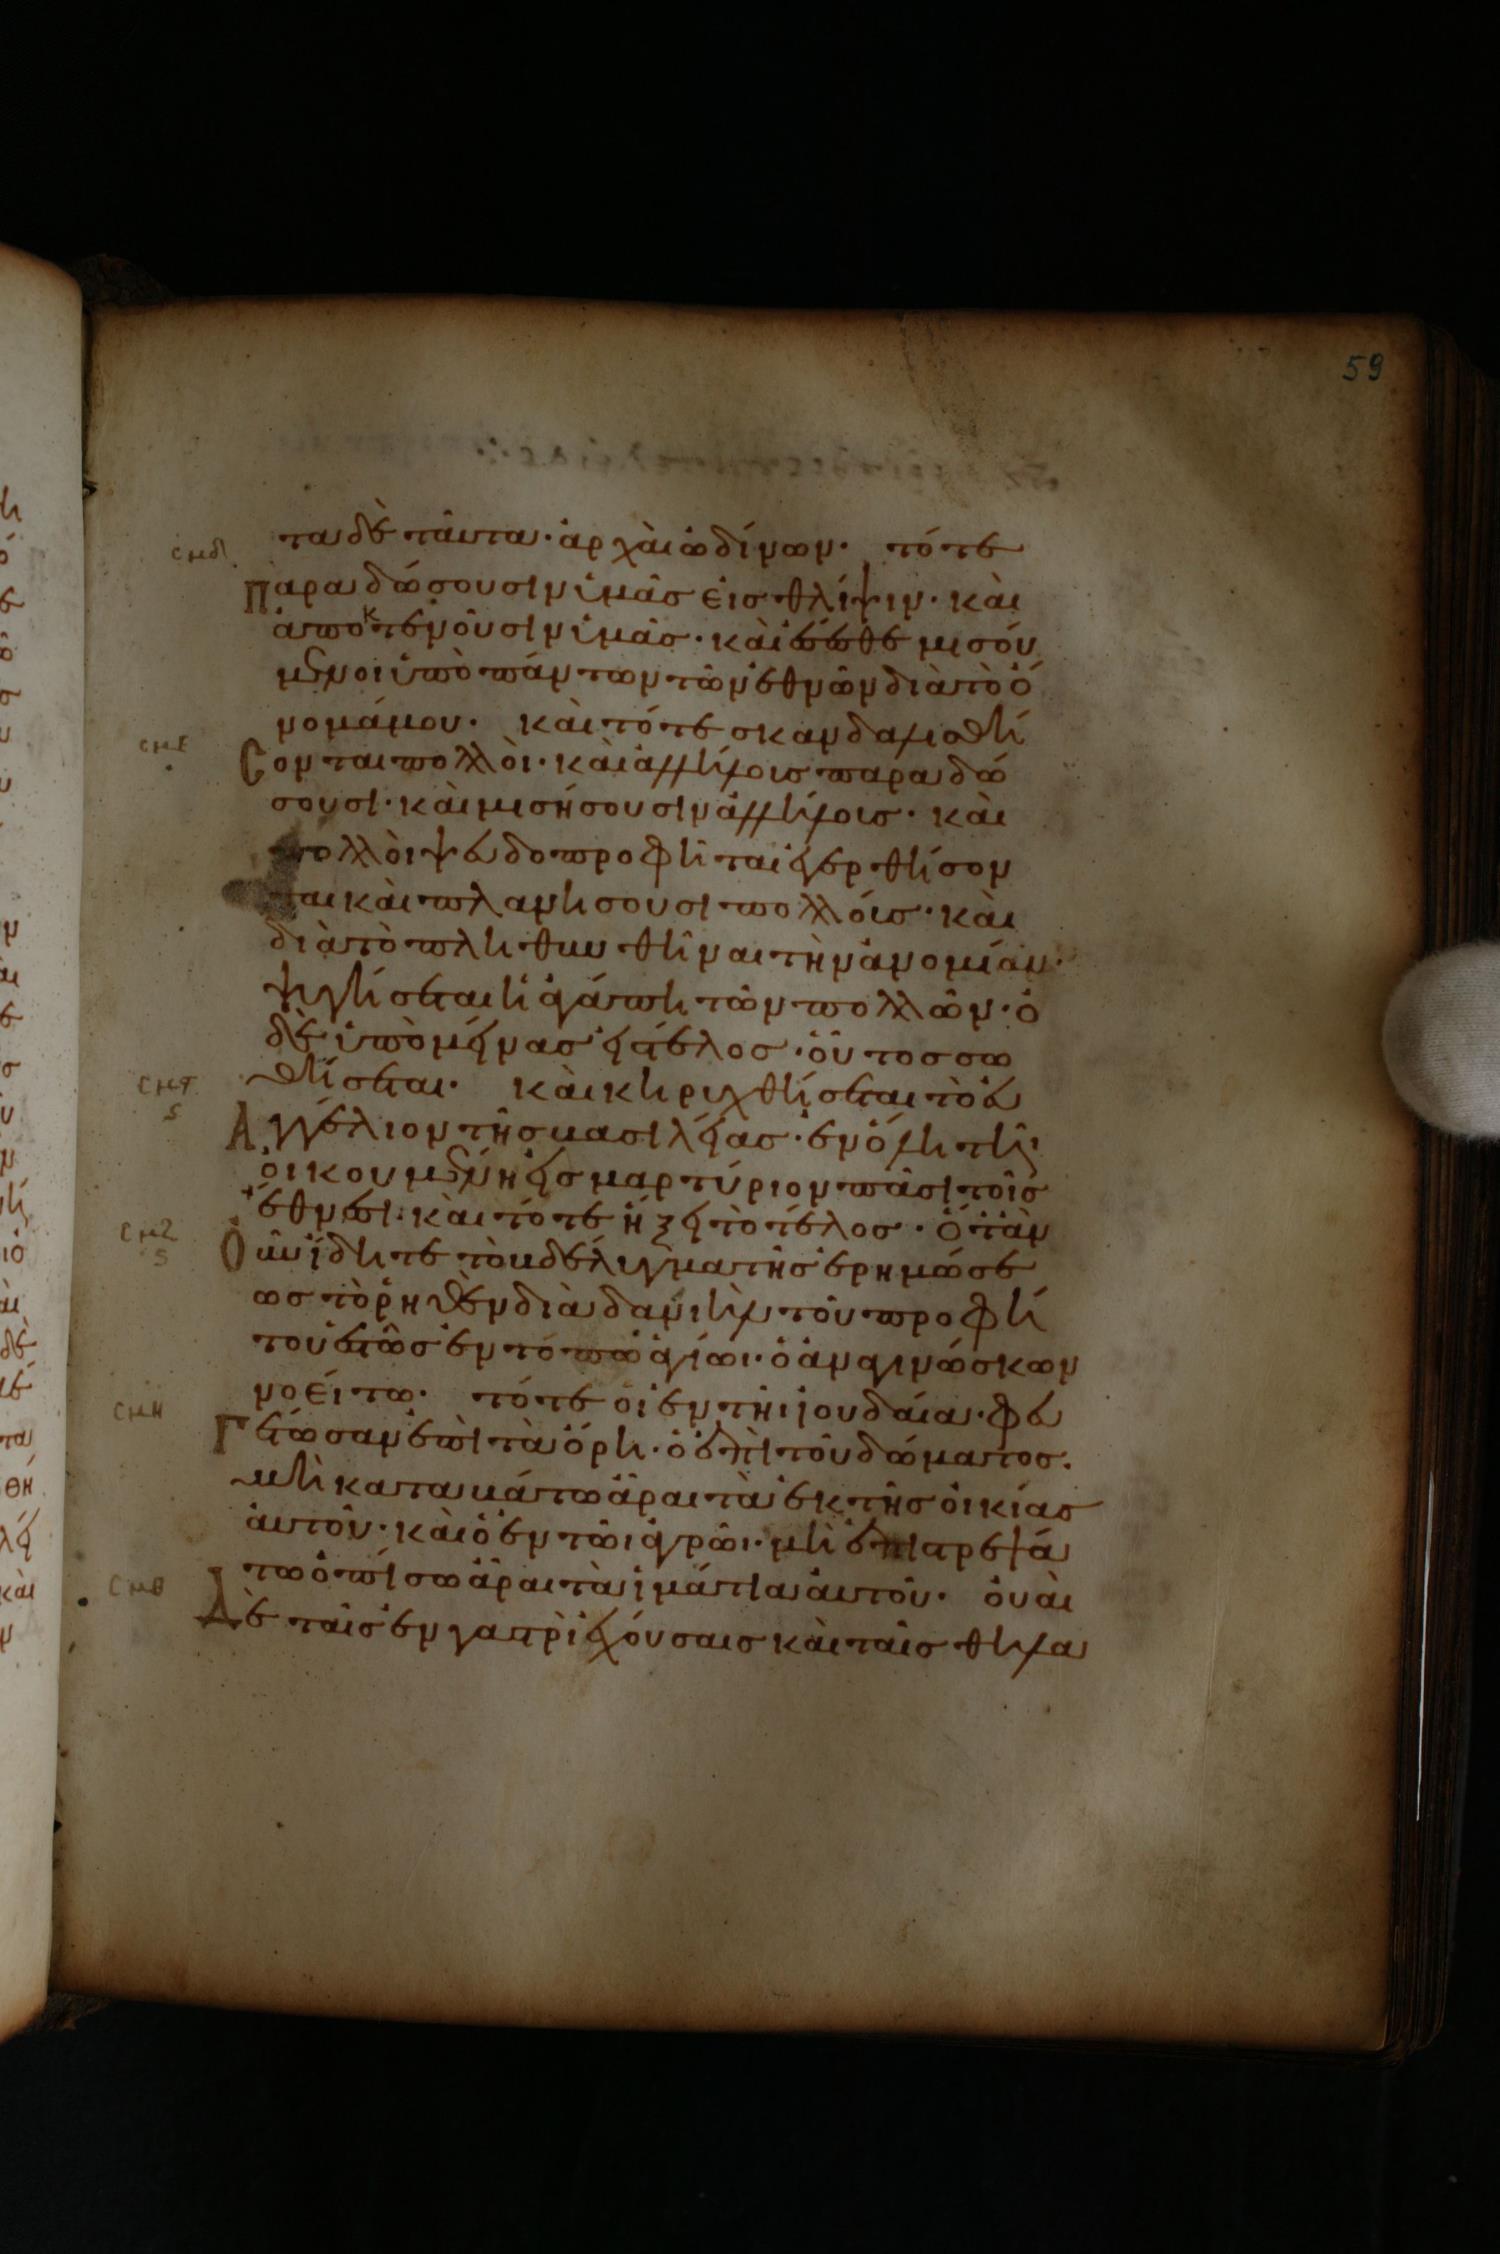 59
σμδ
τα δὲ ταῦτα· ἀρχαὶ ὠδίνων· τότε
Παραδώσουσιν ὑμᾶσ εἰσ θλίψιν· καὶ
ἀποκτενοῦσιν ὑμᾶσ· καὶ ἔσεσθε μισού
μενοι ὑπὸ πάντων τῶν ἐθνῶν διὰ τὸ ὄ
νομά μου· καὶ τότε σκανδαλισθή
σμε
Σονται πολλοὶ· καὶ ἀλλήλοισ παραδώ
σουσι· καὶ μισήσουσιν ἀλλήλοισ· καὶ
πολλοὶ ψευδοπροφῆται ἐγερθήσον
ται καὶ πλανησουσι πολλοίσ· καὶ
διὰ τὸ πληθυνθῆναι τὴν ἀνομίαν·
ψυγήσεται ἡ ἀγάπη τῶν πολλῶν· ὁ
δὲ ὑπὸμείνασ εἰ τέλοσ· οὗτοσ σω
θήσεται· καὶ κηρυχθήσεται τὸ εὐ
σμϛ
ϛ
Αγγέλιον τῆσ βασιλείασ· ἐν ὅλη τῆ
οἰκουμένη εἰσ μαρτύριον πᾶσι τοῖσ
ἔθνεσι· καὶ τότε ἥξει τὸ τέλοσ· Ὅταν
σμζ
ϛ
Οὖν ἴδητε τὸ βδέλυγμα τῆσ ἐρημώσε
ωσ τὸ ῥηθὲν διὰ δανιὴλ τοῦ προφή
του ἑστὼσ ἐν τόπω ἁγίωι· ὁ ἀναγινώσκων
νοείτω· τότε οἱ ἐν τῆι ἰουδαία· φευ
σμη
Γέτωσαν ἐπὶ τὰ ὄρη· ὁ ἐπὶ τοῦ δώματοσ·
μὴ καταβάτω ἆραι τὰ ἐκ τῆσ οἰκίασ
αὐτοῦ· καὶ ὁ ἐν τῶι ἀγρῶι· μὴ ἐπιστρεψά
τω ὀπίσω ἆραι τὰ ἱμάτια αὐτοῦ· οὐαὶ
σμθ
Δὲ ταῖσ ἐν γαστρὶ ἐχούσαισ καὶ ταῖσ θηλα